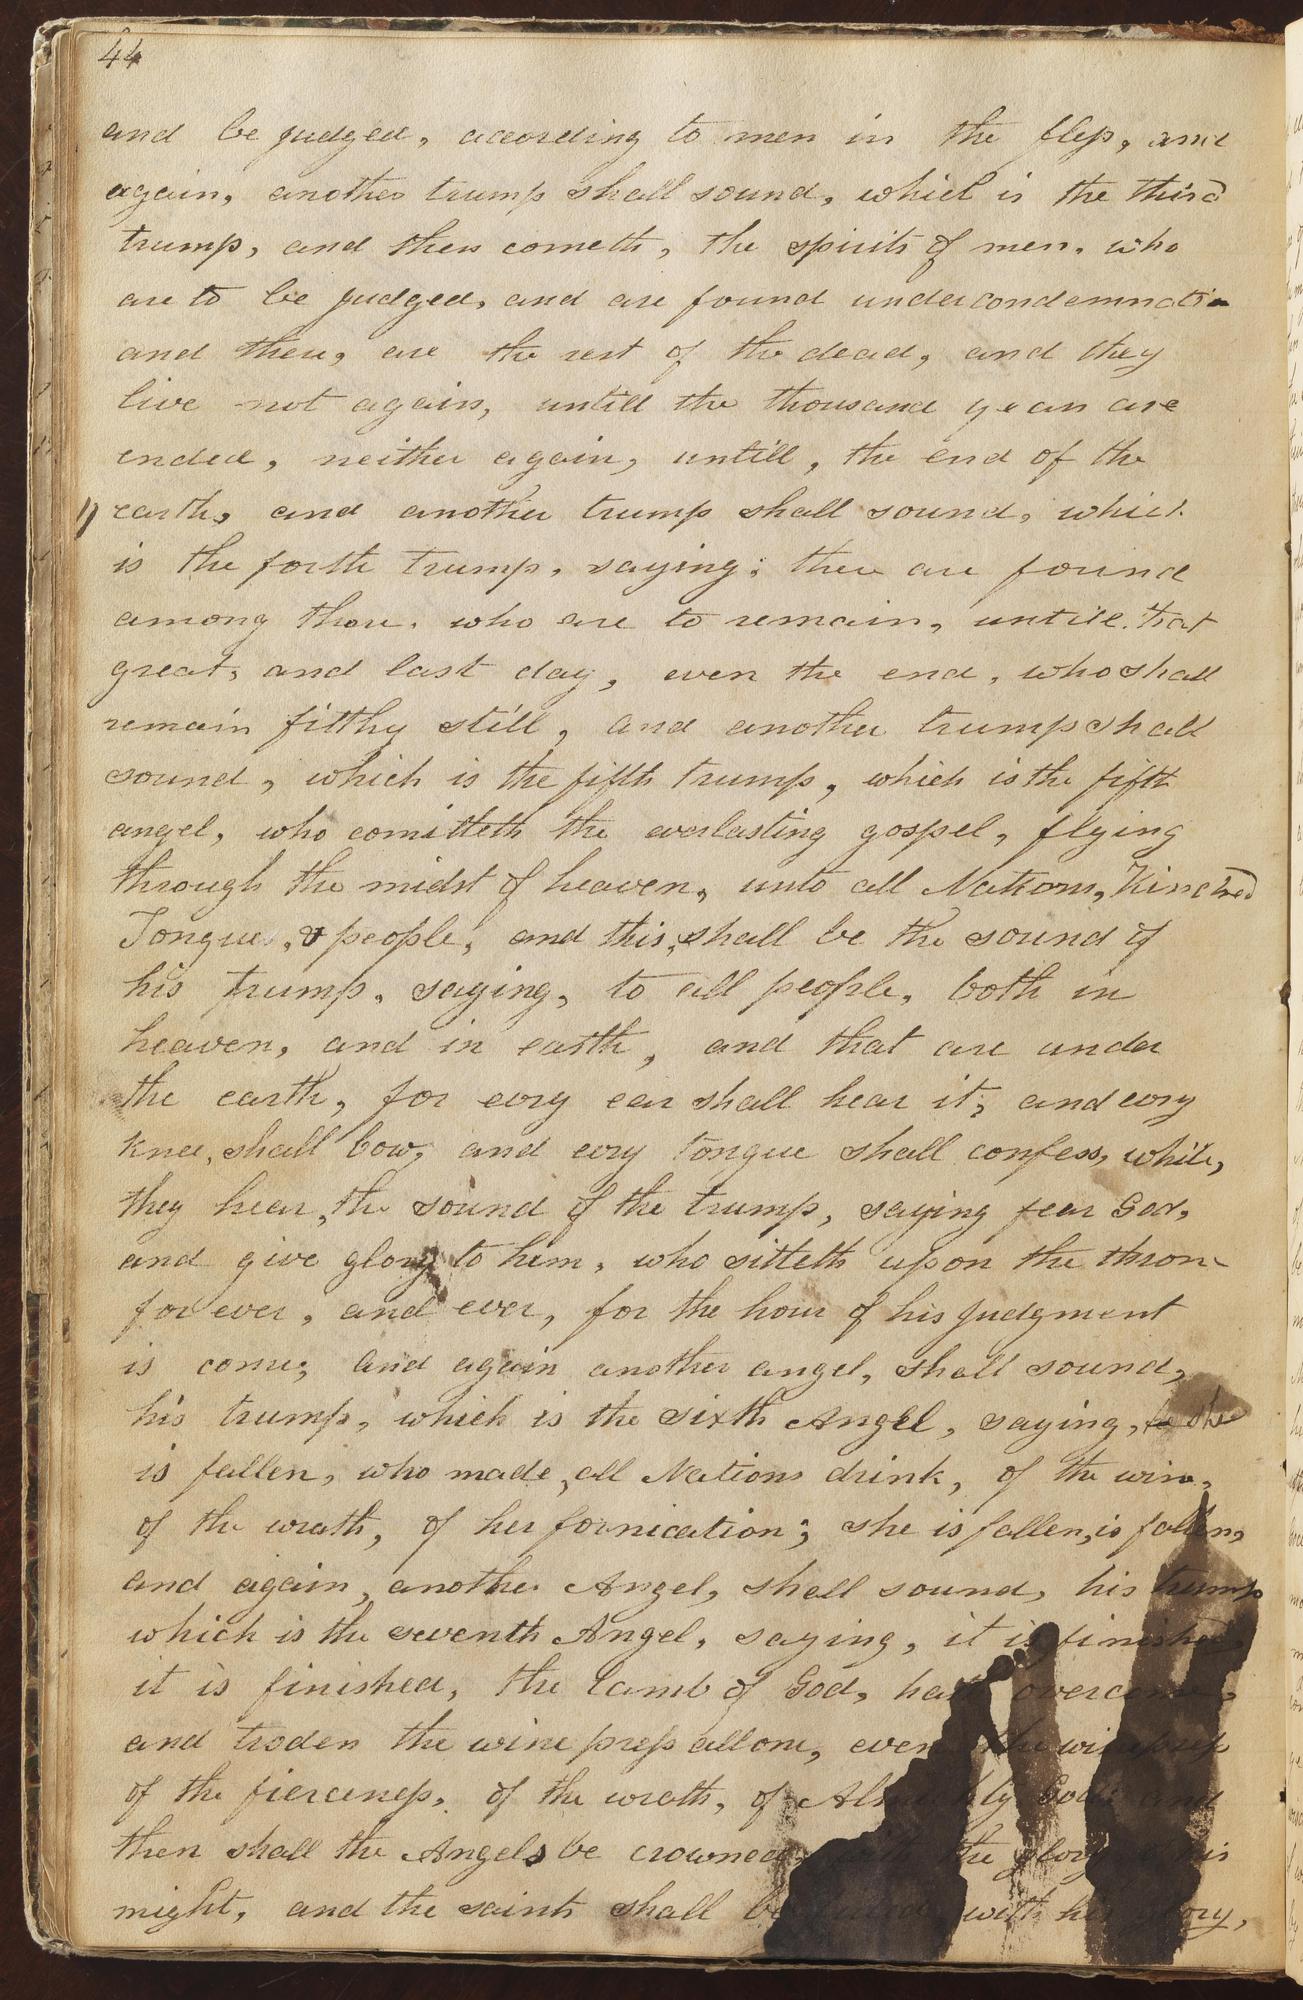 44
and be judged, according to men in the flesh, and
again, another trump shall sound, which is the third
trump, and then cometh, the spirits of men, who
are to be judged, and are found under condemnatin
and these, are the rest of the dead, and they
live not again, untill the thousand years are
ended, neither again, untill, the end of the
earth, and another trump shall sound, which
is the forth trump, saying; there are found
among those, who are to remain, untill that
great, and last day, even the end, who shall
remain filthy still, and another trump shall
sound, which is the fifth trump, which is the fifth
angel, who comitteth the everlasting gospel, flying
through the midst of heaven, unto all Nations, Kindred
Tongues, & people, and this, shall be the sound of
his trump, saying, to all people, both in
heaven, and in earth, and that are under
the earth, for evry ear shall hear it; and evry
knee, shall bow, and evry tongue shall confess, while,
they hear, the sound of the trump, saying fear God,
and give glory to him, who sitteth upon the throne
for ever, and ever, for the hour of his judgment
is come; and again another angel, shall sound,
his trump, which is the sixth Angel, saying, she
is fallen, who made, all Nations drink, of the wine,
of the wrath, of her fornication; she is fallen, is fallen,
and again, another Angel, shall sound, his trump
which is the seventh Angel, saying, it is finished,
it is finished, the lamb of God, hath overcome,
and troden the wine press allone, even the wine press
of the fierceness, of the wrath, of Almighty God, and
then shall the Angels be crowned, with the glory his
might, and the saints shall be with his glory,